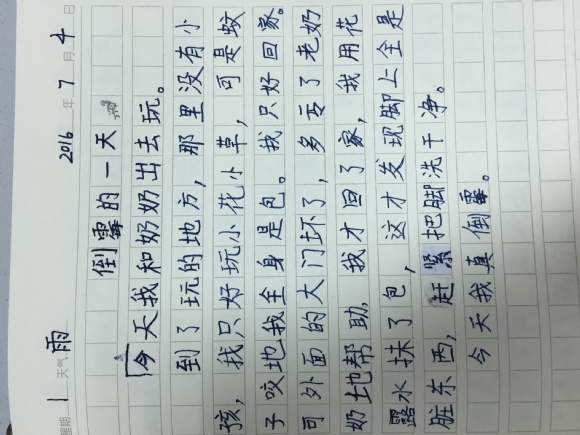 2016年7月4日
星期1 天气雨
倒霉的一天
今天我和奶奶出去玩。
到了玩的地方，那里没有小
孩，我只好玩小花小草，可是蚊
子咬地我全身是包。我只好回家。
可外面的大门坏了，多亏了老奶
奶地帮助，我才回了家，我用花
露水抹了包，这才发现脚上全是
脏东西，赶紧把脚洗干净。
今天我真倒霉。